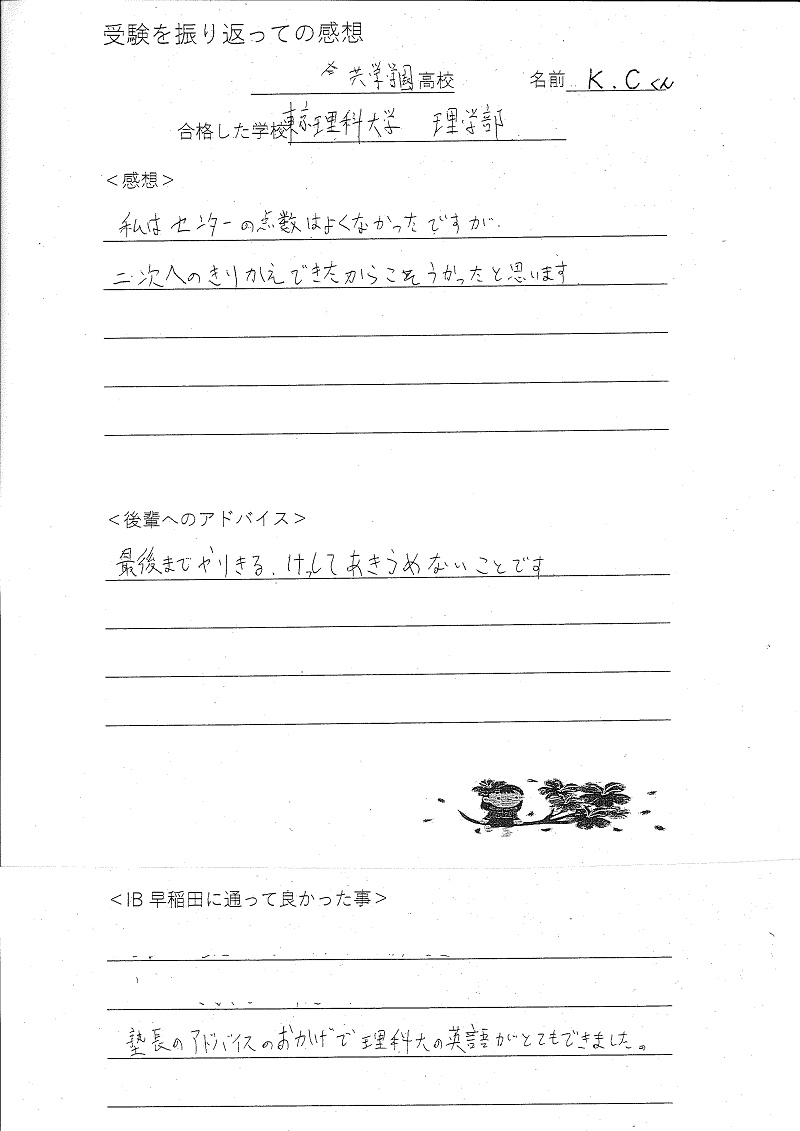 受験を振り返っての感想
共学学園高校 名前 K.Cくん
合格した学校 東京理科大学 理学部
＜感想＞
私はセンターの点数はよくなかったですが、
二次へのきりかえできたからこそうかったと思います
＜後輩へのアドバイス＞
最後までやりきる、けっしてあきらめないことです
＜IB早稲田に通って良かった事＞
塾長のアドバイスのおかげで理科大の英語がとてもできました。